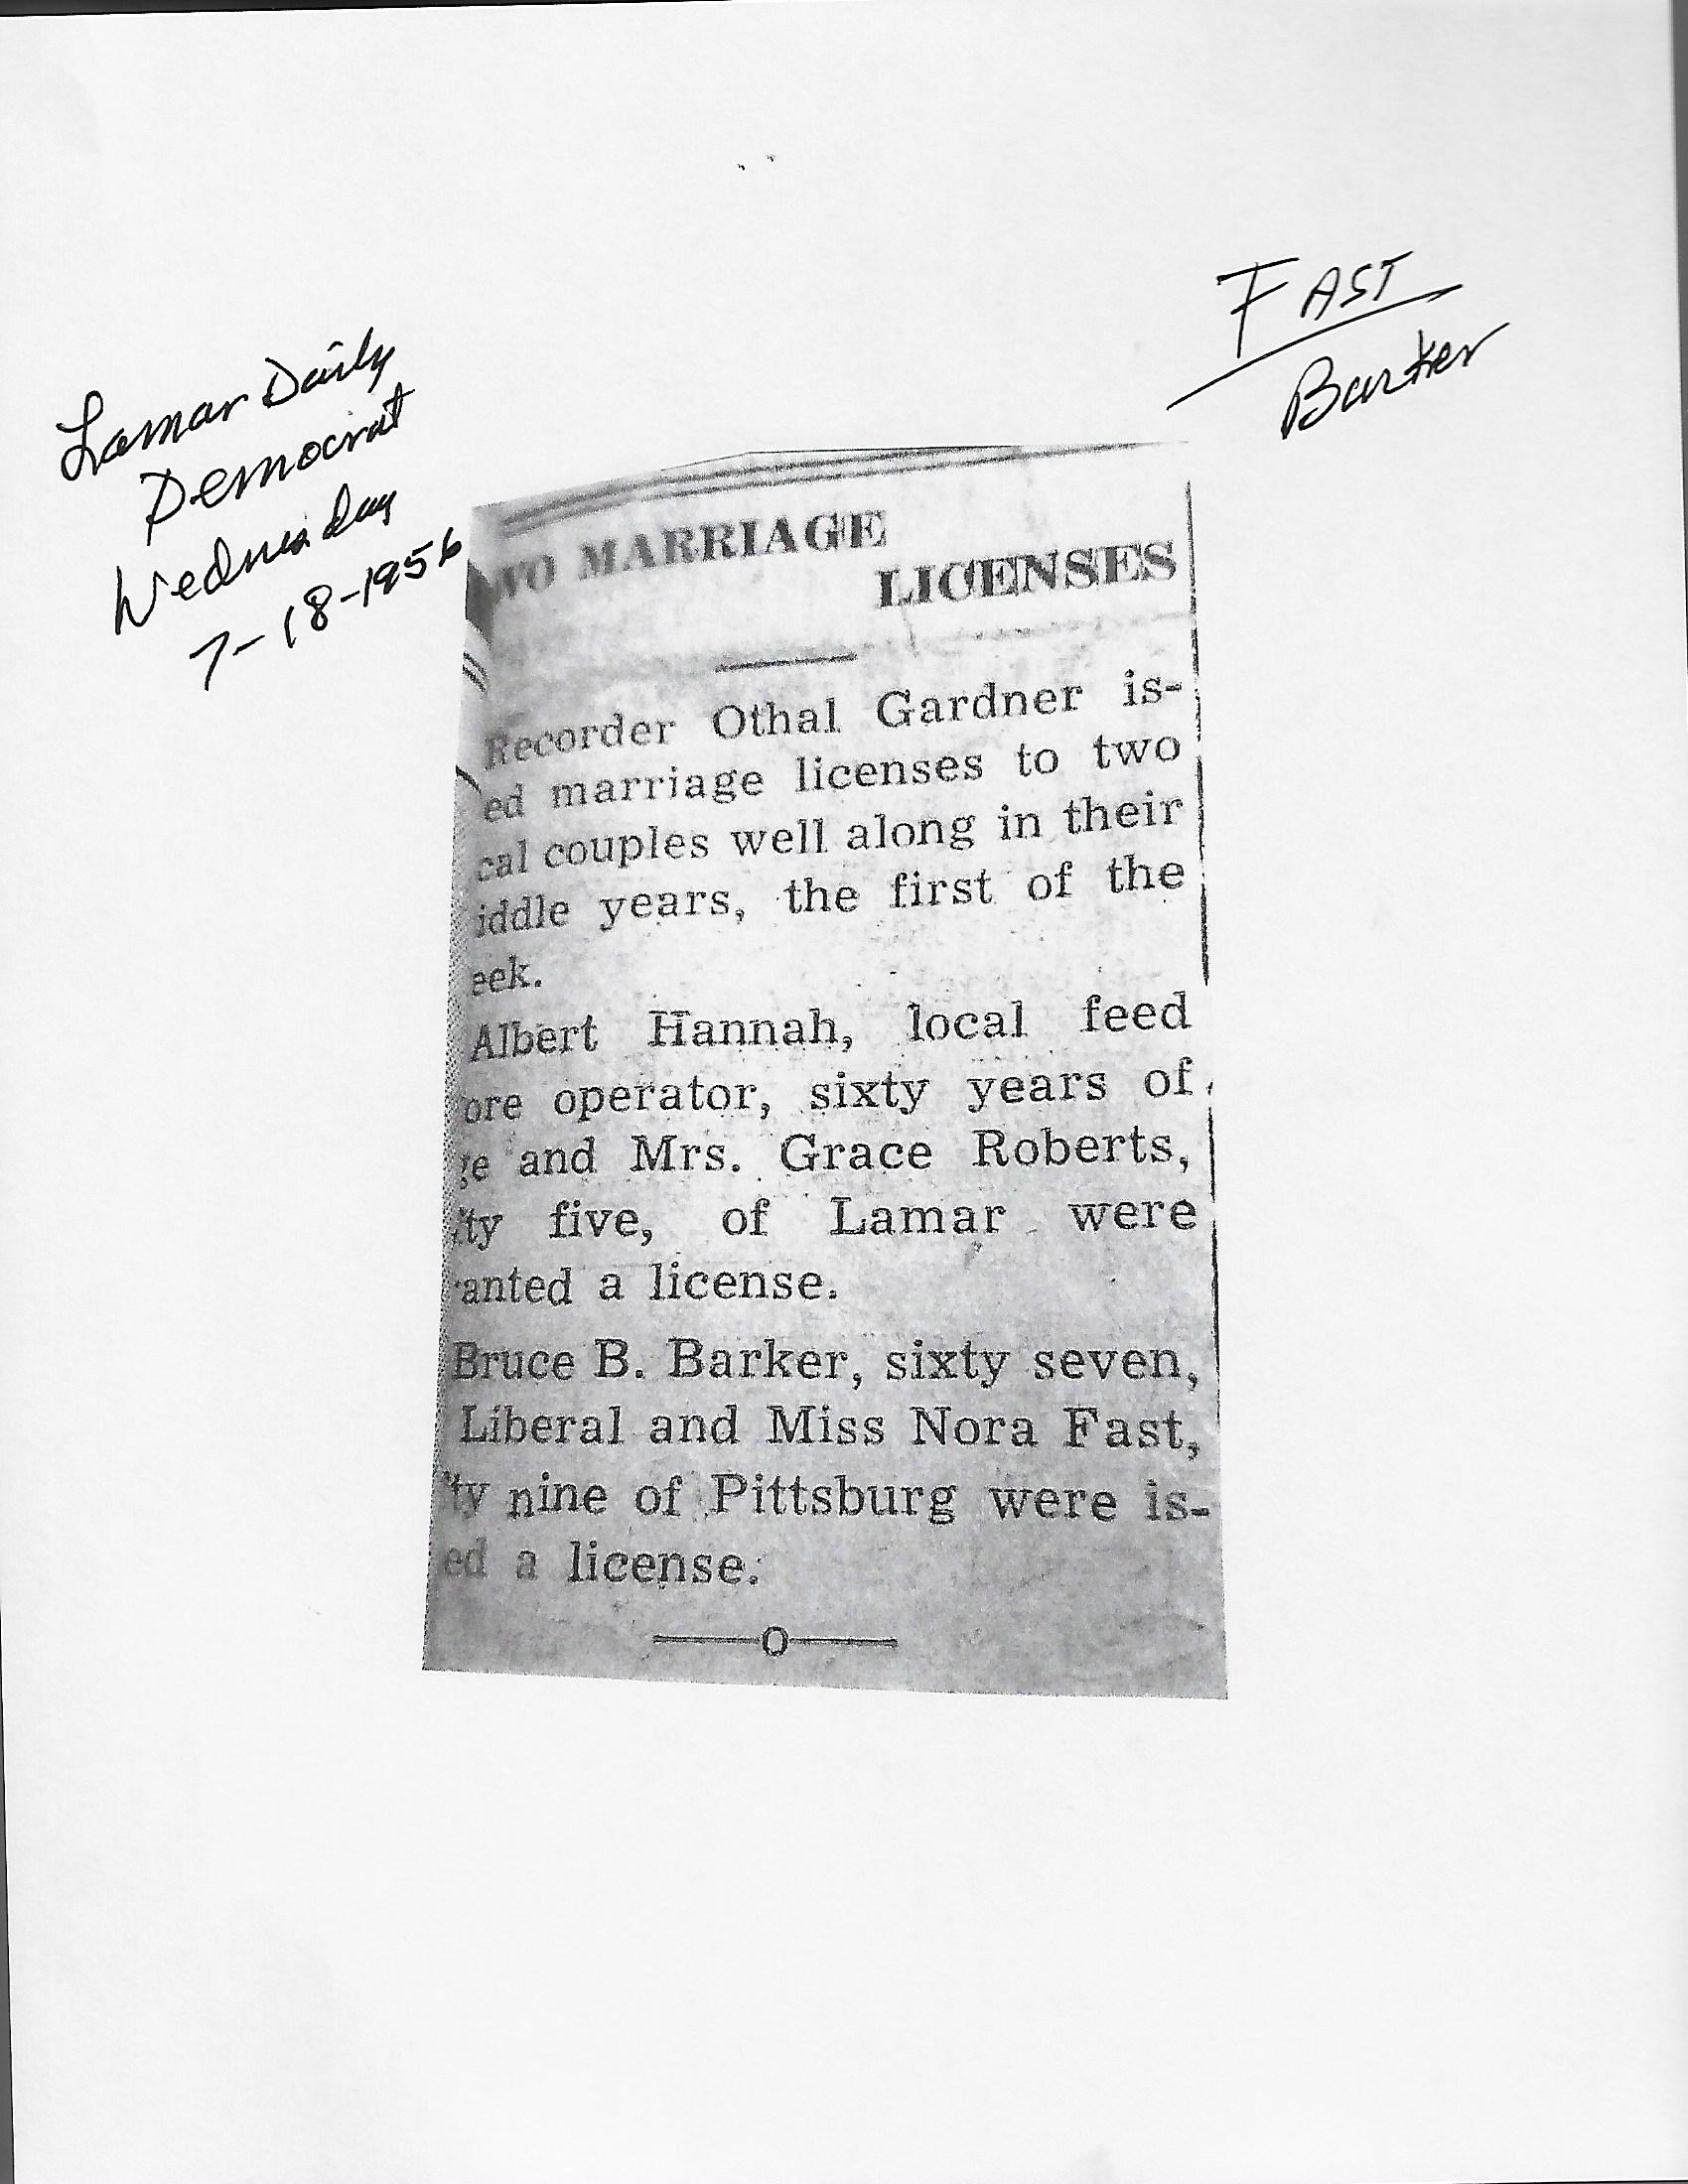 FAST
Barker
Lamar Daily
Democrat
Wednesday
7-18-1956
WO MARRIAGE
LICENSES
Recorder Othal Gardner is-
ed marriage licenses to two
cal couples well along in their
iddle years, the first of the
eek.
Albert Hannah, local feed
ore operator, sixty years of
ge and Mrs. Grace Roberts,
ty five, of Lamar were
anted a license.
Bruce B. Barker, sixty seven,
Liberal and Miss Nora Fast,
ty nine of Pittsburg were is-
ed a license.
O